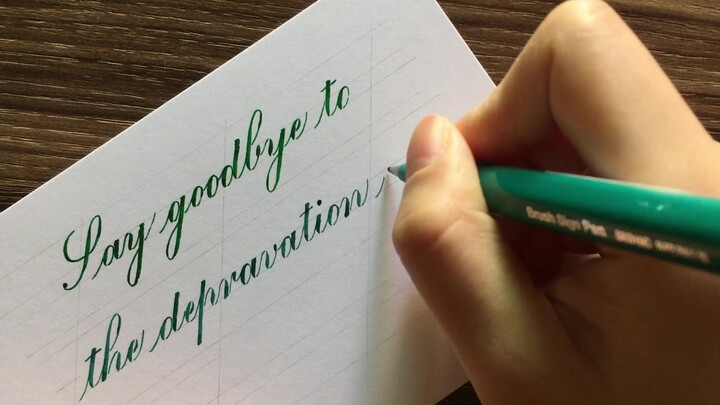 Say goodbye to
the depravation
Brush Sign Pen